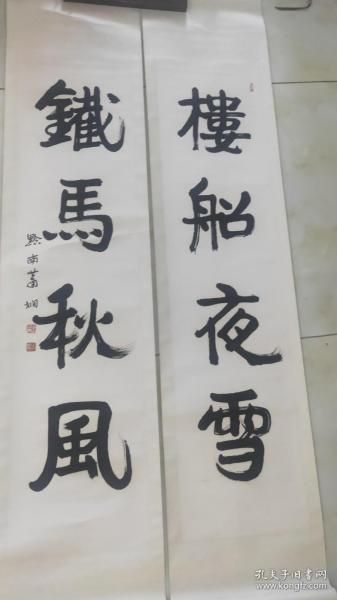 樓船夜雪
鐵馬秋風
黔南蕭嫻
孔夫子旧书网